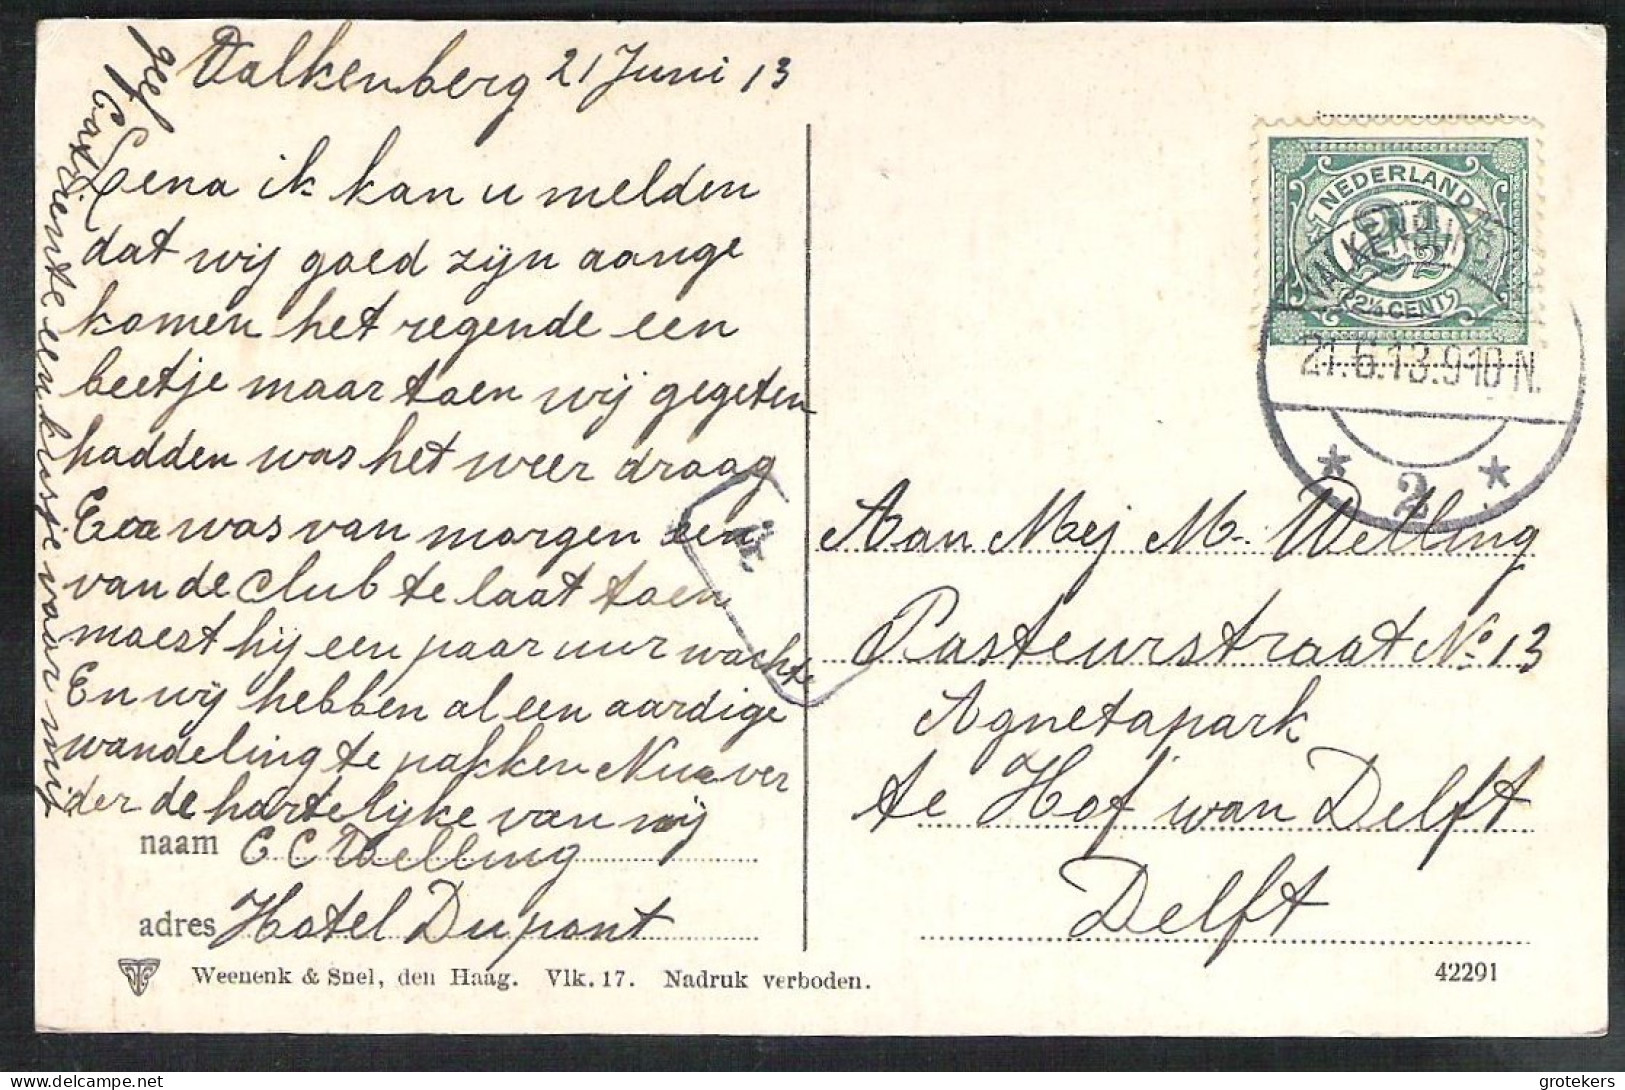 Valkenberg 21 Juni 13
Lena ik kan u melden
dat wij goed zijn aange
komen het regende een
beetje maar toen wij gegeten
hadden was het weer droog
Er was van morgen een
van de club te laat toen
moest hij een paar uur wachte
En wij hebben al een aardige
wandeling te pakken Nu ver
der de hartelijke van mij
naam E C Welling
adres Hotel Dupont
geef
een kusje voor mij
Weenenk & Snel, den Haag. Vlk. 17. Nadruk verboden.
NEDERLAND
2½
2½ CENT
VALKENBURG
21.6.13.9-10 N.
2
Aan Mej M. Welling
Pasteurstraat No 13
Agnetapark
te Hof van Delft
Delft
42291
delcampe.net
grotekers